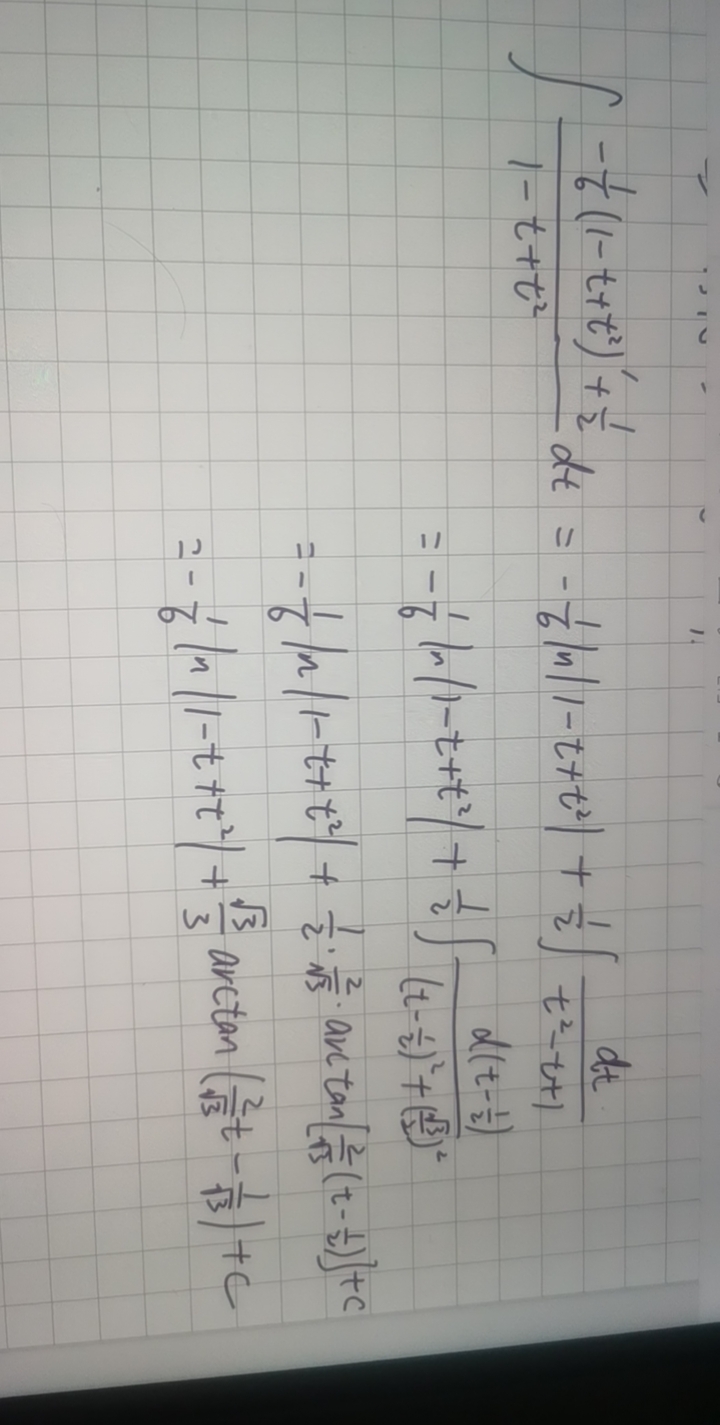 ∫ (-1/6 (1-t+t²)' + 1/2)/(1-t+t²) dt = -1/6 ln|1-t+t²| + 1/2 ∫ dt/(t²-t+1)
= -1/6 ln|1-t+t²| + 1/2 ∫ d(t-1/2)/((t-1/2)²+(√3/2)²)
= -1/6 ln|1-t+t²| + 1/2 · 2/√3 · arctan[2/√3 (t-1/2)]+C
= -1/6 ln|1-t+t²| + √3/3 arctan(2/√3 t - 1/√3)+C